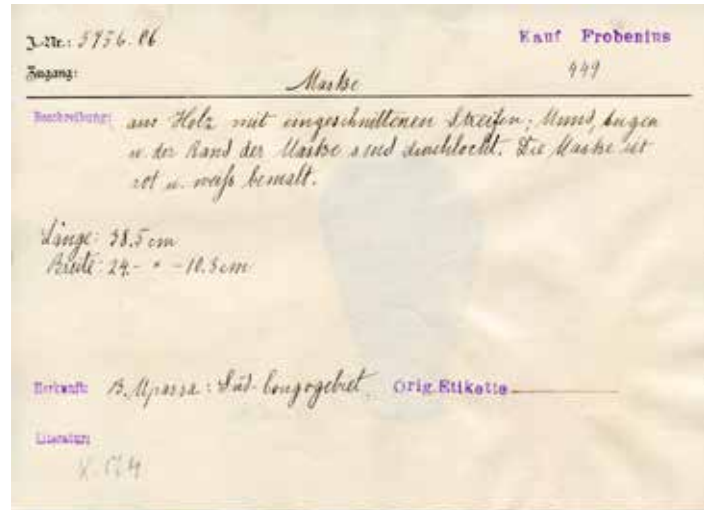 J.-Nr.: 5956.06
Kauf Frobenius
Zugang:
449
Maske
Beschreibung: aus Holz mit eingeschnittenen Streifen; Mund, Augen
u. der Rand der Maske sind durchlocht. Die Maske ist
rot u. weiß bemalt.
Länge: 38.5 cm
Breite: 24.- " -10.5 cm
Herkunft: Süd-Congogebiet, Orig. Etikette
Literatur: